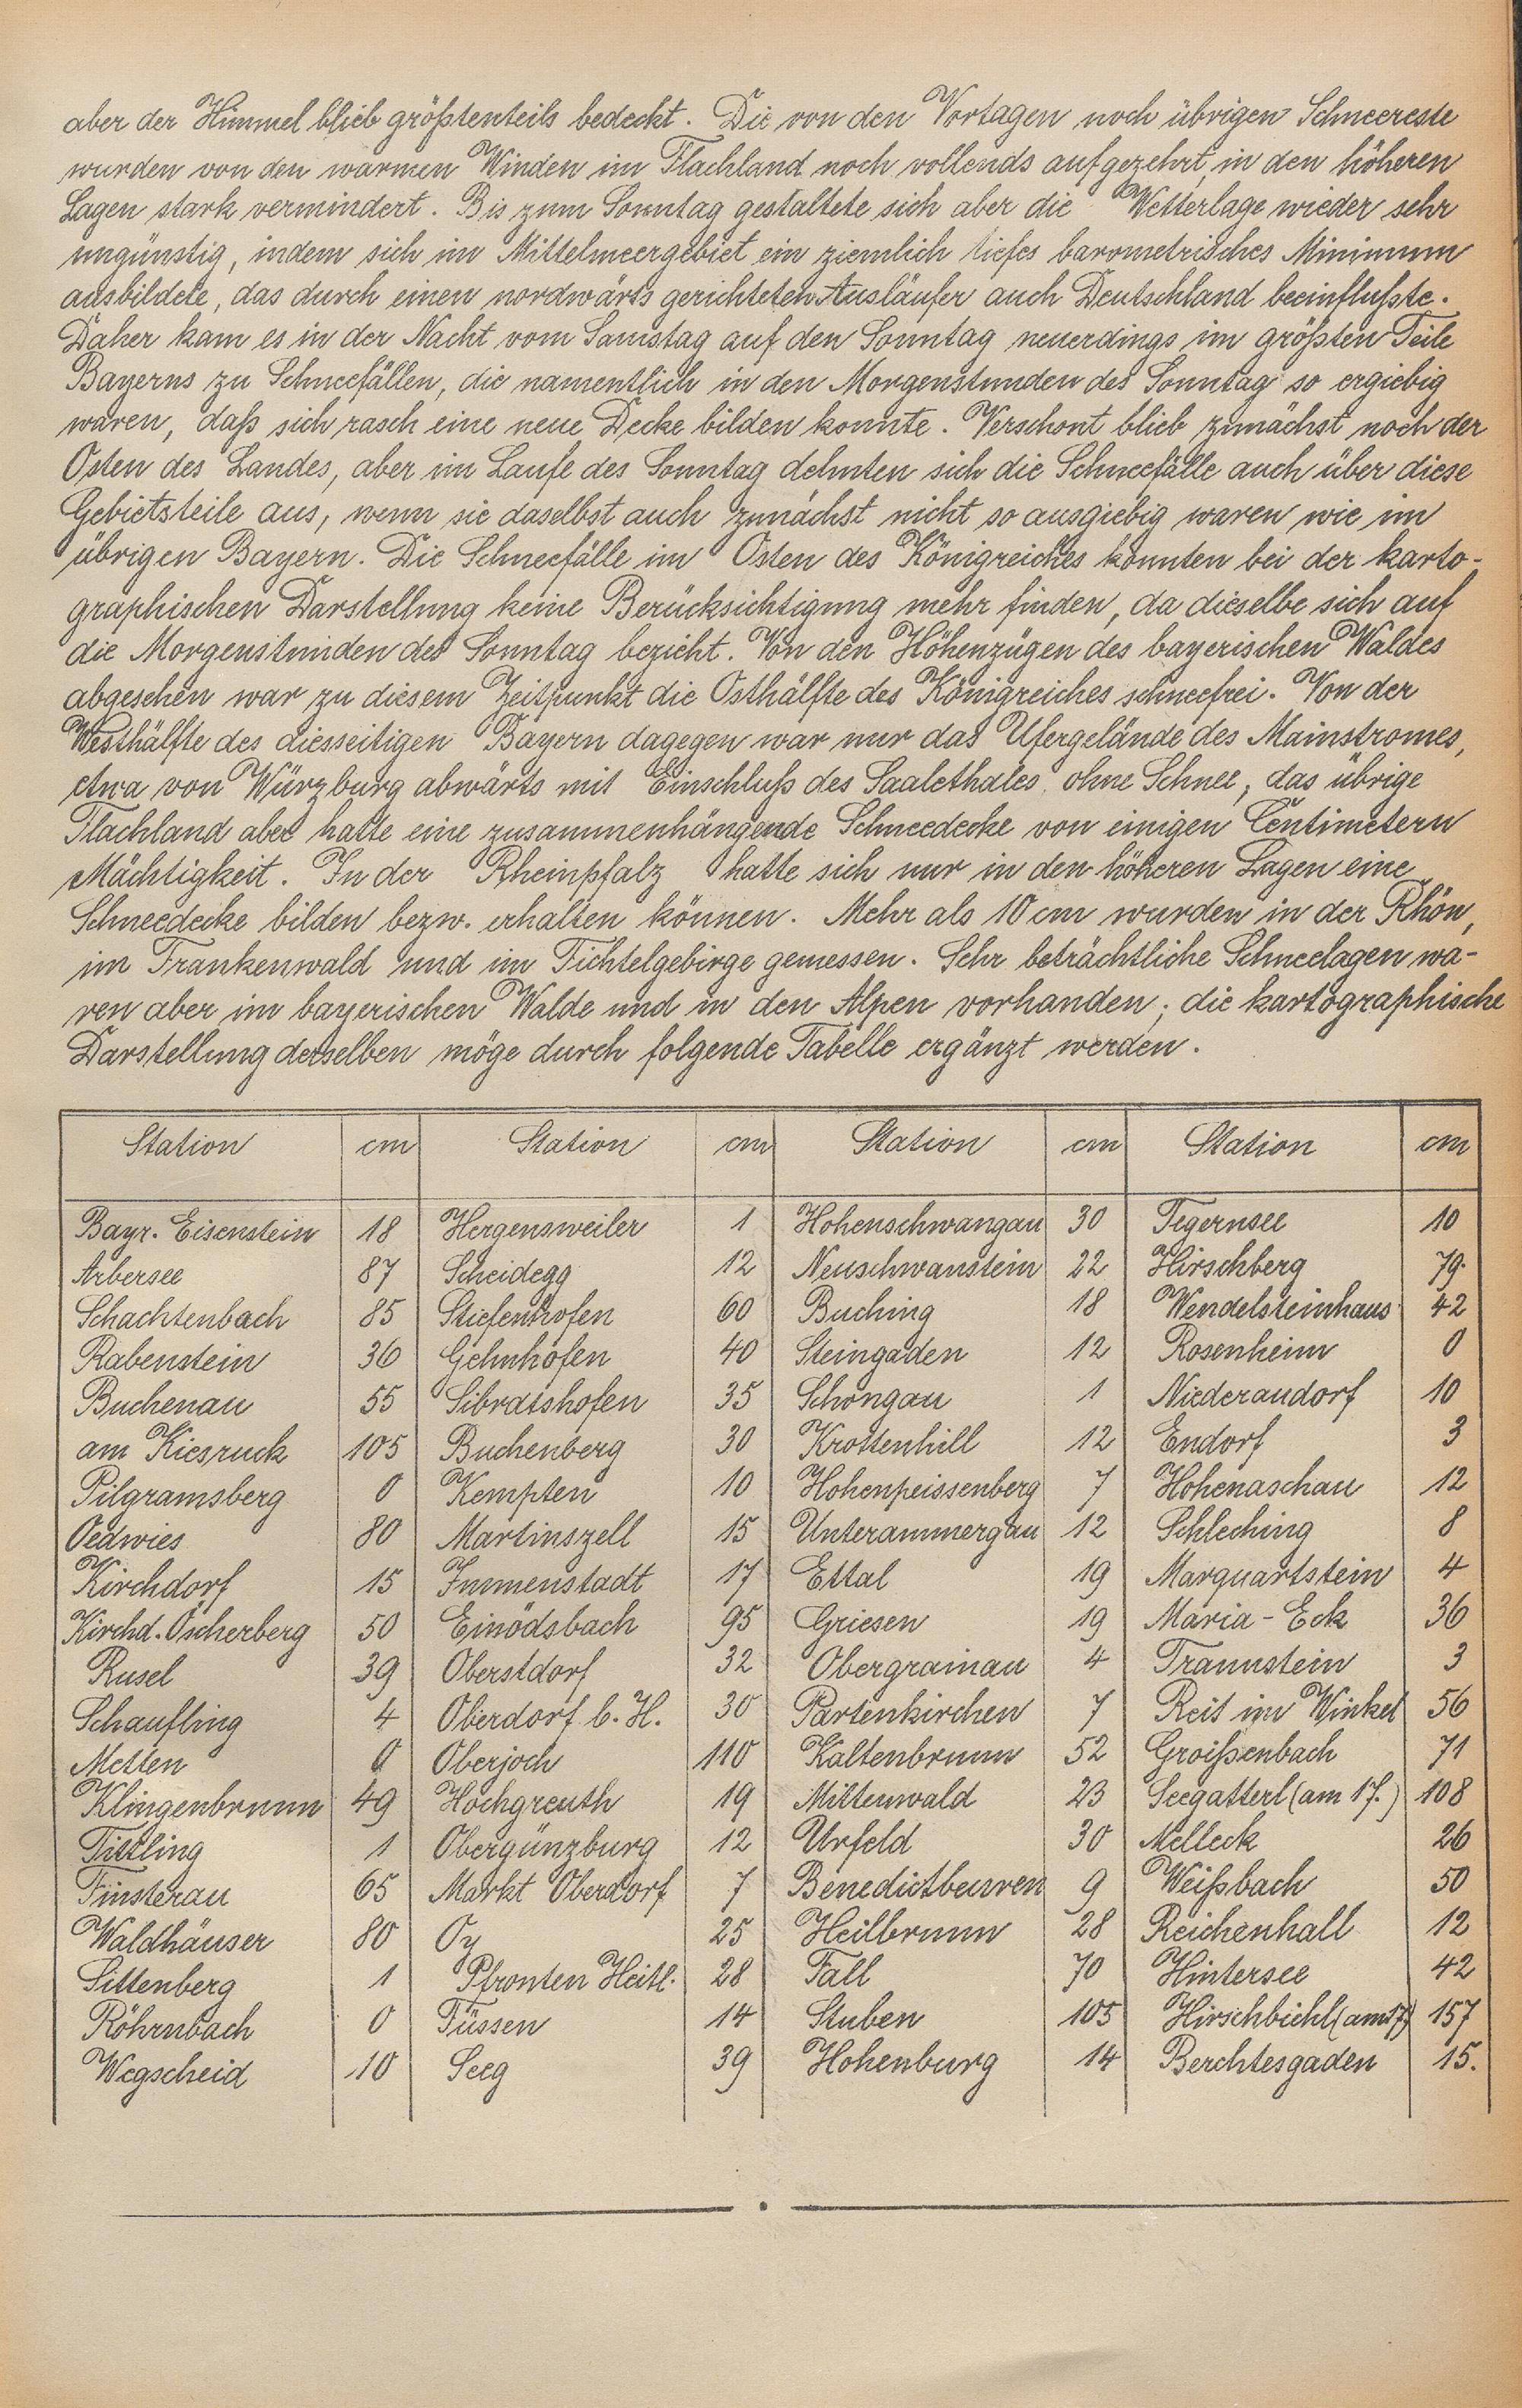 aber der Himmel blieb größtenteils bedeckt. Die von den Vortagen noch übrigen Schneereste
wurden von den warmen Winden im Flachland noch vollends aufgezehrt, in den höheren
Lagen stark vermindert. Bis zum Sonntag gestaltete sich aber die Wetterlage wieder sehr
ungünstig, indem sich im Mittelmeergebiet ein ziemlich tiefes barometrisches Minimum
ausbildete, das durch einen nordwärts gerichteten Ausläufer auch Deutschland beeinflußte.
Daher kam es in der Nacht vom Samstag auf den Sonntag neuerdings im größten Teile
Bayerns zu Schneefällen, die namentlich in den Morgenstunden des Sonntag so ergiebig
waren, daß sich rasch eine neue Decke bilden konnte. Verschont blieb zunächst noch der
Osten des Landes, aber im Laufe des Sonntag dehnten sich die Schneefälle auch über diese
Gebietsteile aus, wenn sie daselbst auch zunächst nicht so ausgiebig waren wie im
übrigen Bayern. Die Schneefälle im Osten des Königreiches konnten bei der karto-
graphischen Darstellung keine Berücksichtigung mehr finden, da dieselbe sich auf
die Morgenstunden des Sonntag bezieht. Von den Höhenzügen des bayerischen Waldes
abgesehen war zu diesem Zeitpunkt die Osthälfte des Königreiches schneefrei. Von der
Westhälfte des diesseitigen Bayern dagegen war nur das Ufergelände des Mainstromes,
etwa von Würzburg abwärts mit Einschluß des Saalethales ohne Schnee, das übrige
Flachland aber hatte eine zusammenhängende Schneedecke von einigen Centimetern
Mächtigkeit. In der Rheinpfalz hatte sich nur in den höheren Lagen eine
Schneedecke bilden bezw. erhalten können. Mehr als 10 cm wurden in der Rhön,
im Frankenwald und im Fichtelgebirge gemessen. Sehr beträchtliche Schneelagen wa-
ren aber im bayerischen Walde und in den Alpen vorhanden; die kartographische
Darstellung derselben möge durch folgende Tabelle ergänzt werden.
Station cm Station cm Station cm Station cm
Bayr. Eisenstein 18 Hergensweiler 1 Hohenschwangau 30 Tegernsee 10
Arbersee 87 Scheidegg 12 Neuschwanstein 22 Hirschberg 79.
Schachtenbach 85 Stiefenhofen 60 Buching 18 Wendelsteinhaus 42
Rabenstein 36 Gehnhofen 40 Steingaden 12 Rosenheim 0
Buchenau 55 Sibratshofen 35 Schongau 1 Niederaudorf 10
am Kiesruck 105 Buchenberg 30 Krottenhill 12 Endorf 3
Pilgramsberg 0 Kempten 10 Hohenpeissenberg 7 Hohenaschau 12
Oedwies 80 Martinszell 15 Unterammergau 12 Schleching 8
Kirchdorf 15 Immenstadt 17 Ettal 19 Marquartstein 4
Kirchd. Öscherberg 50 Einödsbach 95 Griesen 19 Maria-Eck 36
Rusel 39 Oberstdorf 32 Obergrainau 4 Traunstein 3
Schaufling 4 Oberdorf b. H. 30 Partenkirchen 7 Reit im Winkel 56
Metten 0 Oberjoch 110 Kaltenbrunn 52 Groißenbach 71
Klingenbrunn 49 Hochgreuth 19 Mittenwald 23 Seegatterl (am 17.) 108
Tittling 1 Obergünzburg 12 Urfeld 30 Melleck 26
Finsterau 65 Markt Oberdorf 7 Benedictbeuren 9 Weißbach 50
Waldhäuser 80 Oy 25 Heilbrunn 28 Reichenhall 12
Sittenberg 1 Pfronten Heitl. 28 Fall 70 Hintersee 42
Röhrnbach 0 Füssen 14 Stuben 105 Hirschbichl (am 17) 157
Wegscheid 10 Seeg 39 Hohenburg 14 Berchtesgaden 15.